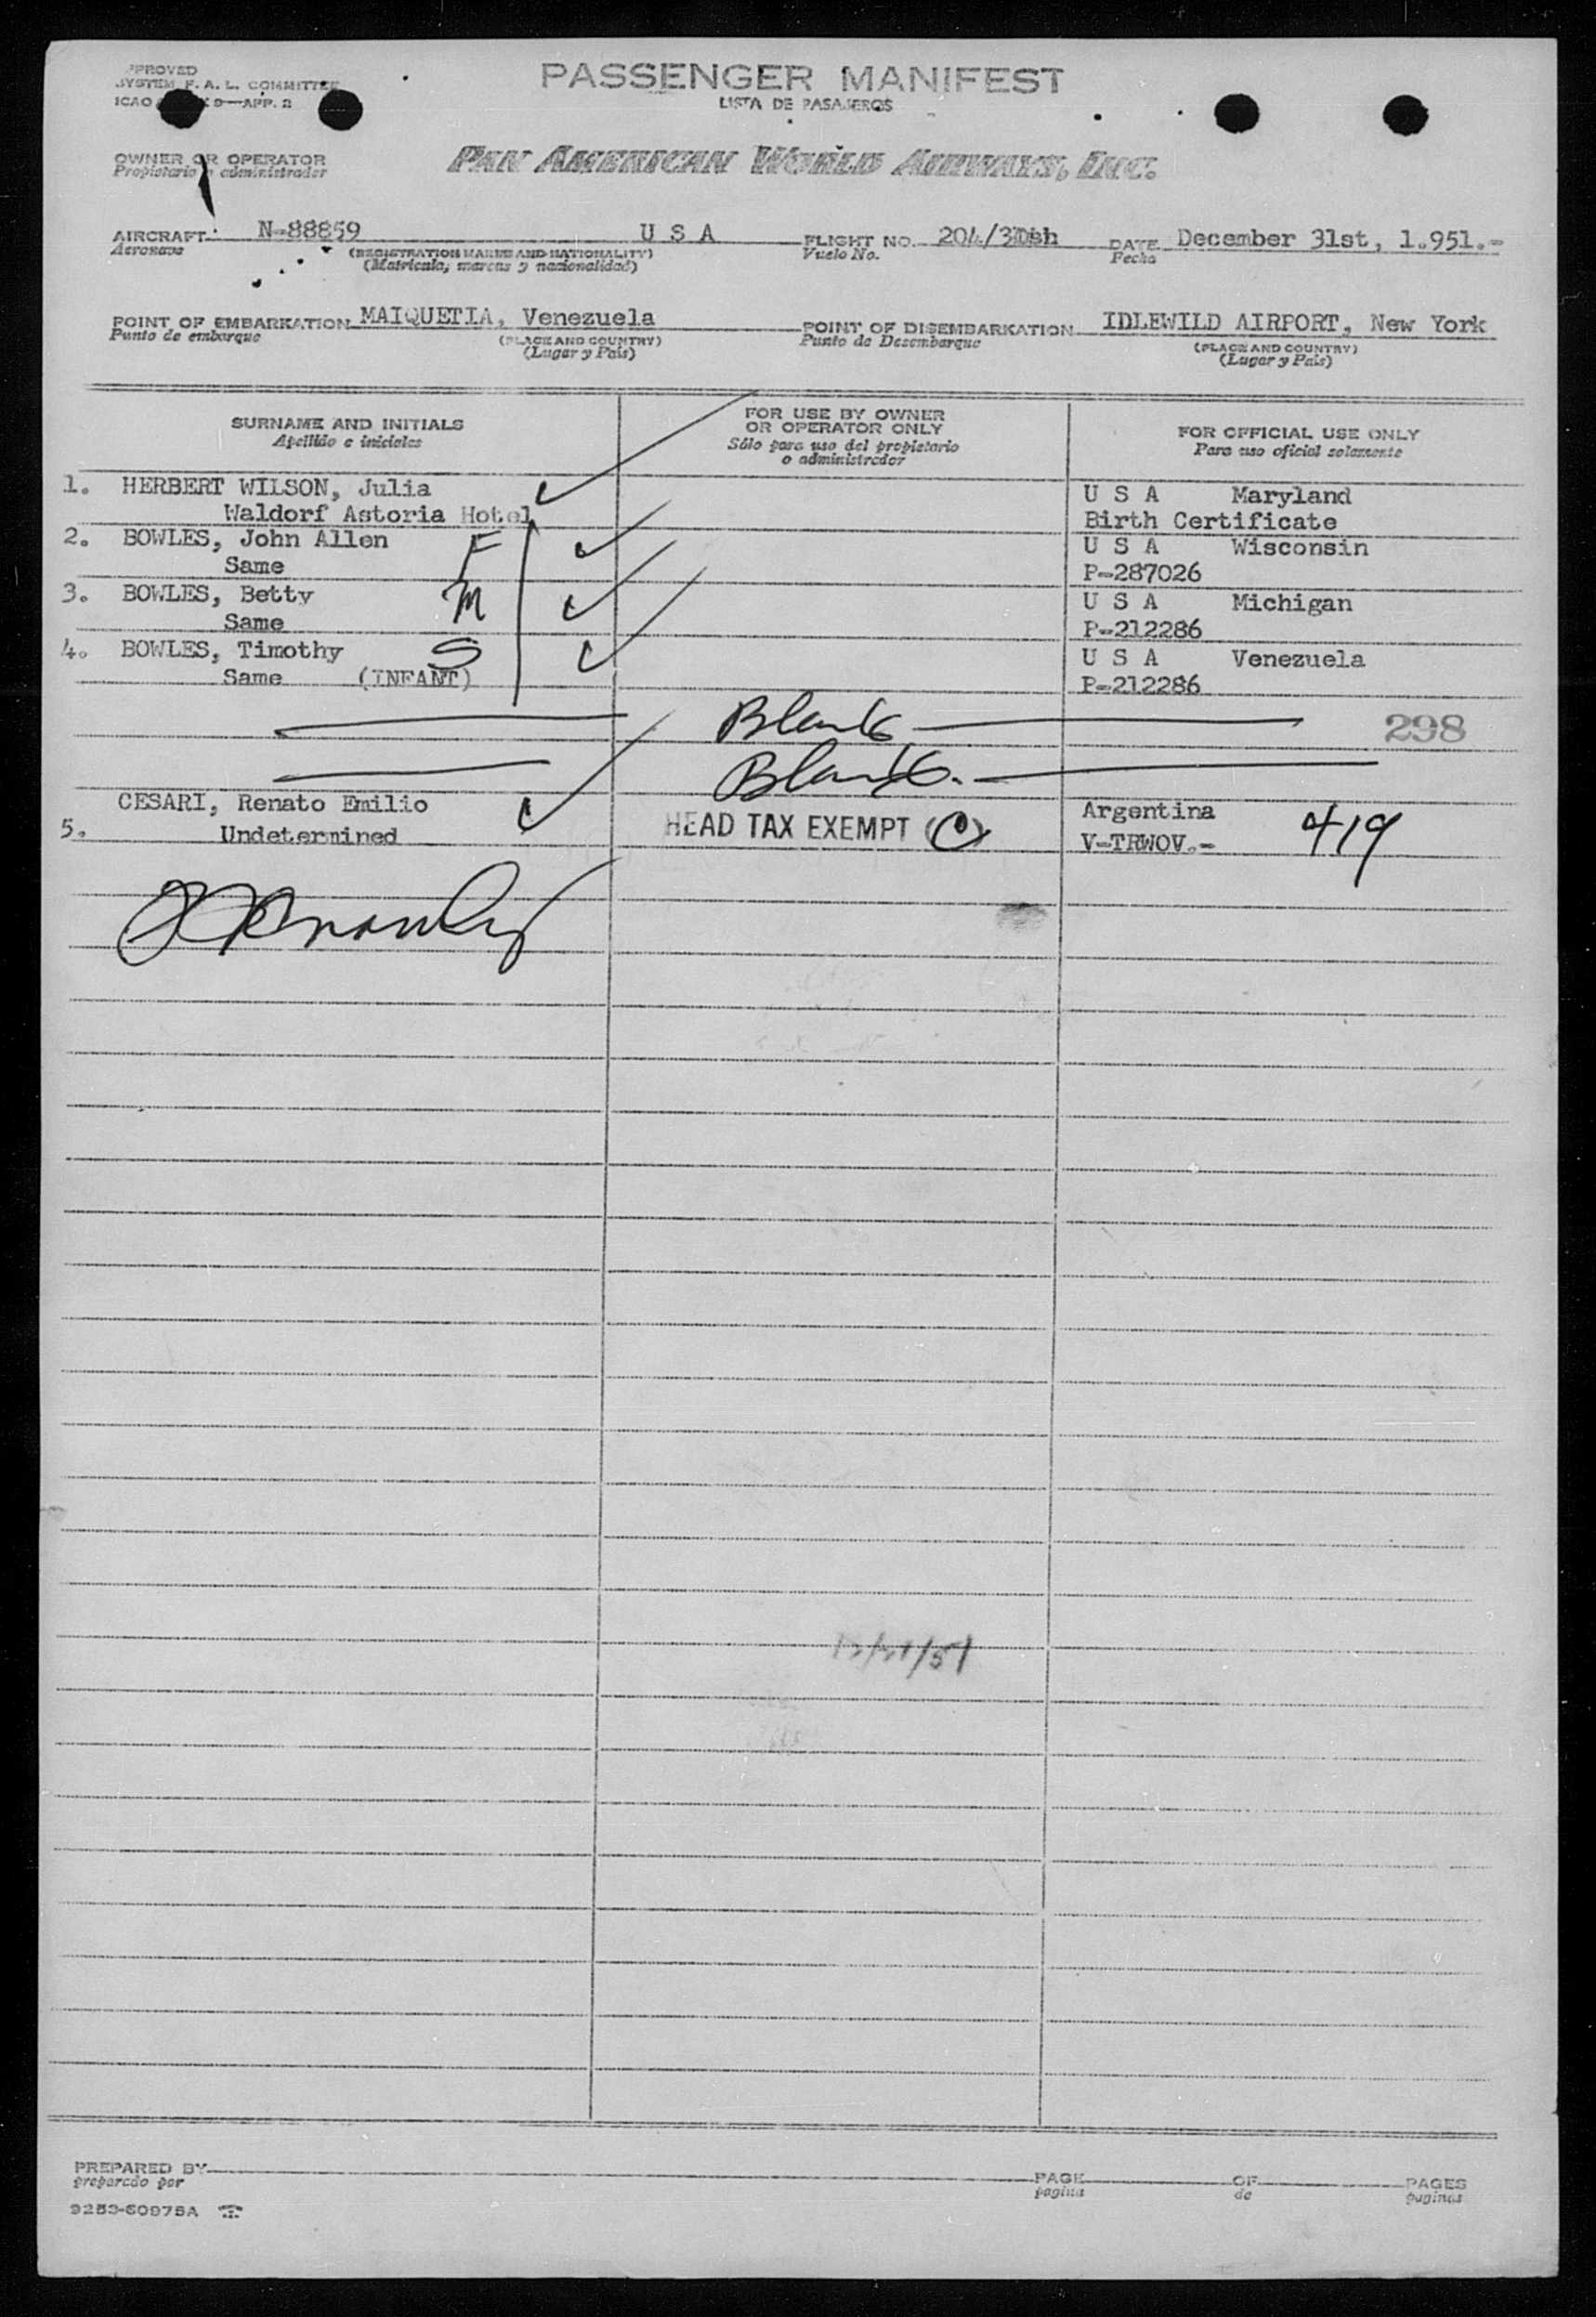 PASSENGER MANIFEST
LISTA DE PASAJEROS
SYSTEM F. A. L. COMMITTEE
ICAO 9—APP. 2
OWNER OR OPERATOR
Propietario o administrador
PAN AMERICAN WORLD AIRWAYS, INC.
AIRCRAFT N-88859 U S A FLIGHT NO. DATE December 31st, 1.951.-
Aeronave (REGISTRATION MARKS AND NATIONALITY) Vuelo No. Fecha
(Matricula, marcas y nacionalidad)
POINT OF EMBARKATION MAIQUETIA, Venezuela POINT OF DISEMBARKATION IDLEWILD AIRPORT, New York
Punto de embarque (PLACE AND COUNTRY) Punto de Desembarque (PLACE AND COUNTRY)
(Lugar y País) (Lugar y País)
SURNAME AND INITIALS FOR USE BY OWNER OR OPERATOR ONLY FOR OFFICIAL USE ONLY
Apellido e iniciales Sólo para uso del propietario o administrador Para uso oficial solamente
1. HERBERT WILSON, Julia U S A Maryland
Waldorf Astoria Hotel Birth Certificate
2. BOWLES, John Allen F U S A Wisconsin
Same P-287026
3. BOWLES, Betty M U S A Michigan
Same P-212286
4. BOWLES, Timothy S U S A Venezuela
Same (INFANT) P-212286
Blank 298
Blank.
CESARI, Renato Emilio Argentina
5. Undetermined HEAD TAX EXEMPT (C) V-TRWOV.- 419
12/31/51
PREPARED BY PAGE OF PAGES
preparado por pagina de paginas
9253-60975A